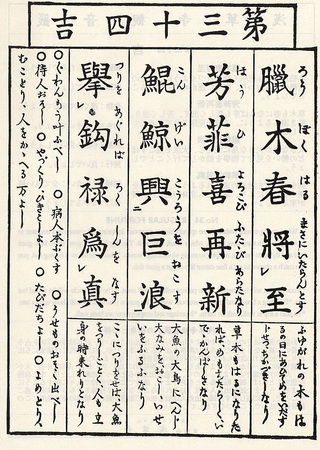 第三十四吉
ろう ぼく はる まさにいたらんとす
臘木春將レ至
ふゆがれの木もは
はう ひ よろこび ふたたび あらたなり
芳菲喜再新
草木もはるになりた
でかんばしきなり
こん げい こうろうを おこす
鯤鯨興二巨浪一
大魚の大鳥にへんじ
大なみをおこし、いせ
いをふるふなり
つりを あぐれば ろく しんを なす
擧レ鈎禄為レ真
こゝにつりをせば、大魚
をうるごとく、人も立
身の時来れりとなり
○ぐわんもう叶ふべし ○病人本ぶくす ○うせものおそく出べし
○待人おそし ○やづくりひきこしよし ○たびだちよし ○よめとり、
むことり、人をかゝへる万よし